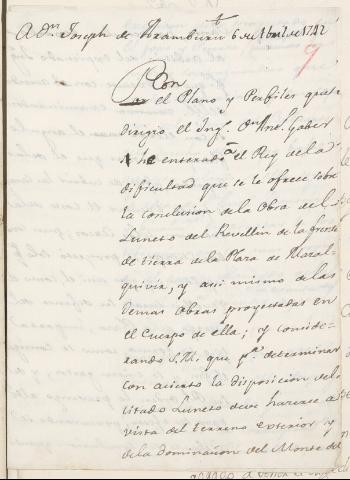 A Dn. Joseph de Aramburu 6 de Abril de 1742
9
Con
el Plano y Perfiles que
dirigio el Ingo. Dn. Anto. Gaber
he enterado el Rey de la
dificultad que se le ofrece sobre
la conclusion de la Obra del
Luneto del Revellin de la frente
de tierra de la Plaza de Mazal-
quivir, y asi mismo de las
demas obras proyectadas en
el Cuerpo de ella; y conside-
rando S.M. que pa. determinar
con acierto la disposicion del
citado Luneto deve hacerse a
vista del terreno exterior y
de la dominacion del Monte del